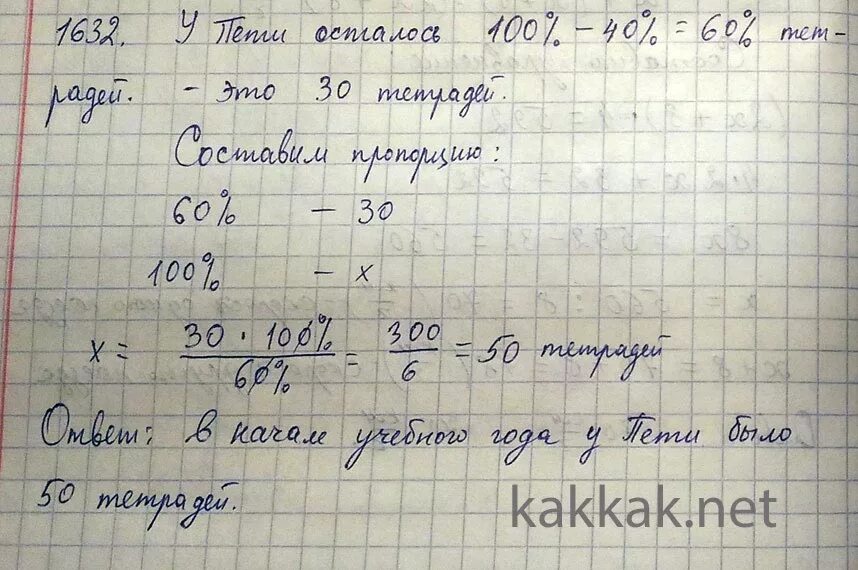 1632. У Пети осталось 100% - 40% = 60% тет-
радей. - это 30 тетрадей.
Составим пропорцию:
60% - 30
100% - x
x = 30 · 100% / 60% = 300 / 6 = 50 тетрадей
Ответ: в начале учебного года у Пети было
50 тетрадей.
kakkak.net